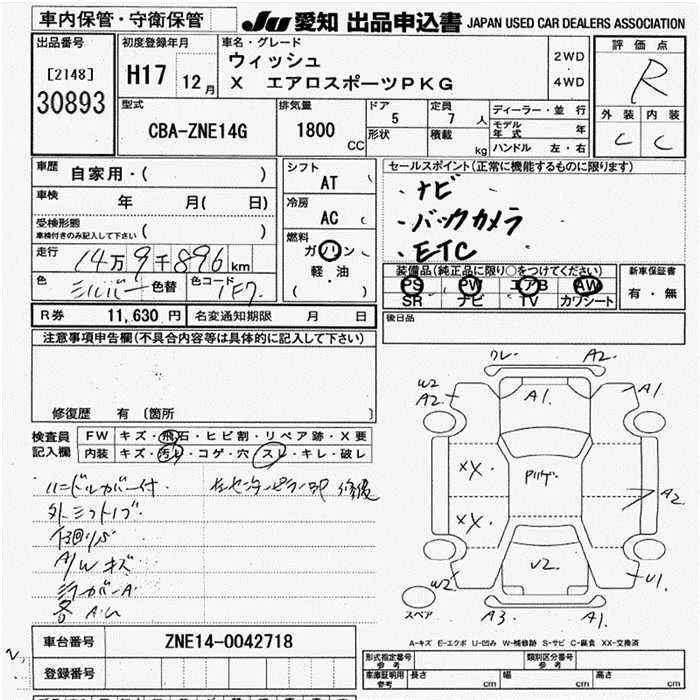 車内保管・守衛保管
JU 愛知 出品申込書 JAPAN USED CAR DEALERS ASSOCIATION
出品番号
[2148]
30893
初度登録年月
H17 12月
車名・グレード
ウィッシュ
X エアロスポーツPKG
2WD
・
4WD
評価点
R
外装 内装
C C
型式
CBA-ZNE14G
排気量
1800
CC
ドア
5
形状
定員
7 人
積載
kg
ディーラー・並行
モデル年式 年
ハンドル 左・右
車歴 自家用・( )
車検 年 月( 日)
受検形態
車検付きのみ記入して下さい ( )
走行 14万9千896km
色 シルバー 色替 色コード 1F7
シフト
AT (
冷房
AC (
燃料
ガソリン
軽・油
( )
セールスポイント(正常に機能するものに限ります)
・ナビ
・バックカメラ
・ETC
装備品(純正品に限り○をつけてください)
PS PW エアB AW
SR ナビ TV カワシート
新車保証書
有・無
R券 11,630 円 名変通知期限 月 日
後日品
注意事項申告欄(不具合内容等は具体的に記入して下さい)
修復歴 有 〔箇所 〕
検査員
記入欄
FW キズ・飛石・ヒビ割・リペア跡・X要
内装 キズ・汚レ・コゲ・穴・スレ・キレ・破レ
ハンドルカバー付
左センターピラー部 修復
下回りサビ
A/W キズ
ワレ A2
W2
A2
A1
A1
XX
XX
A2
U2
W2
U1
スペア
A3 A1
A-キズ E-エクボ U-凹み W-補修跡 S-サビ C-腐食 XX-交換済
車台番号 ZNE14-0042718
登録番号
型式指定番号
参考
類別区分番号
参考
車庫証明用
参考
長さ cm 幅 cm 高さ cm